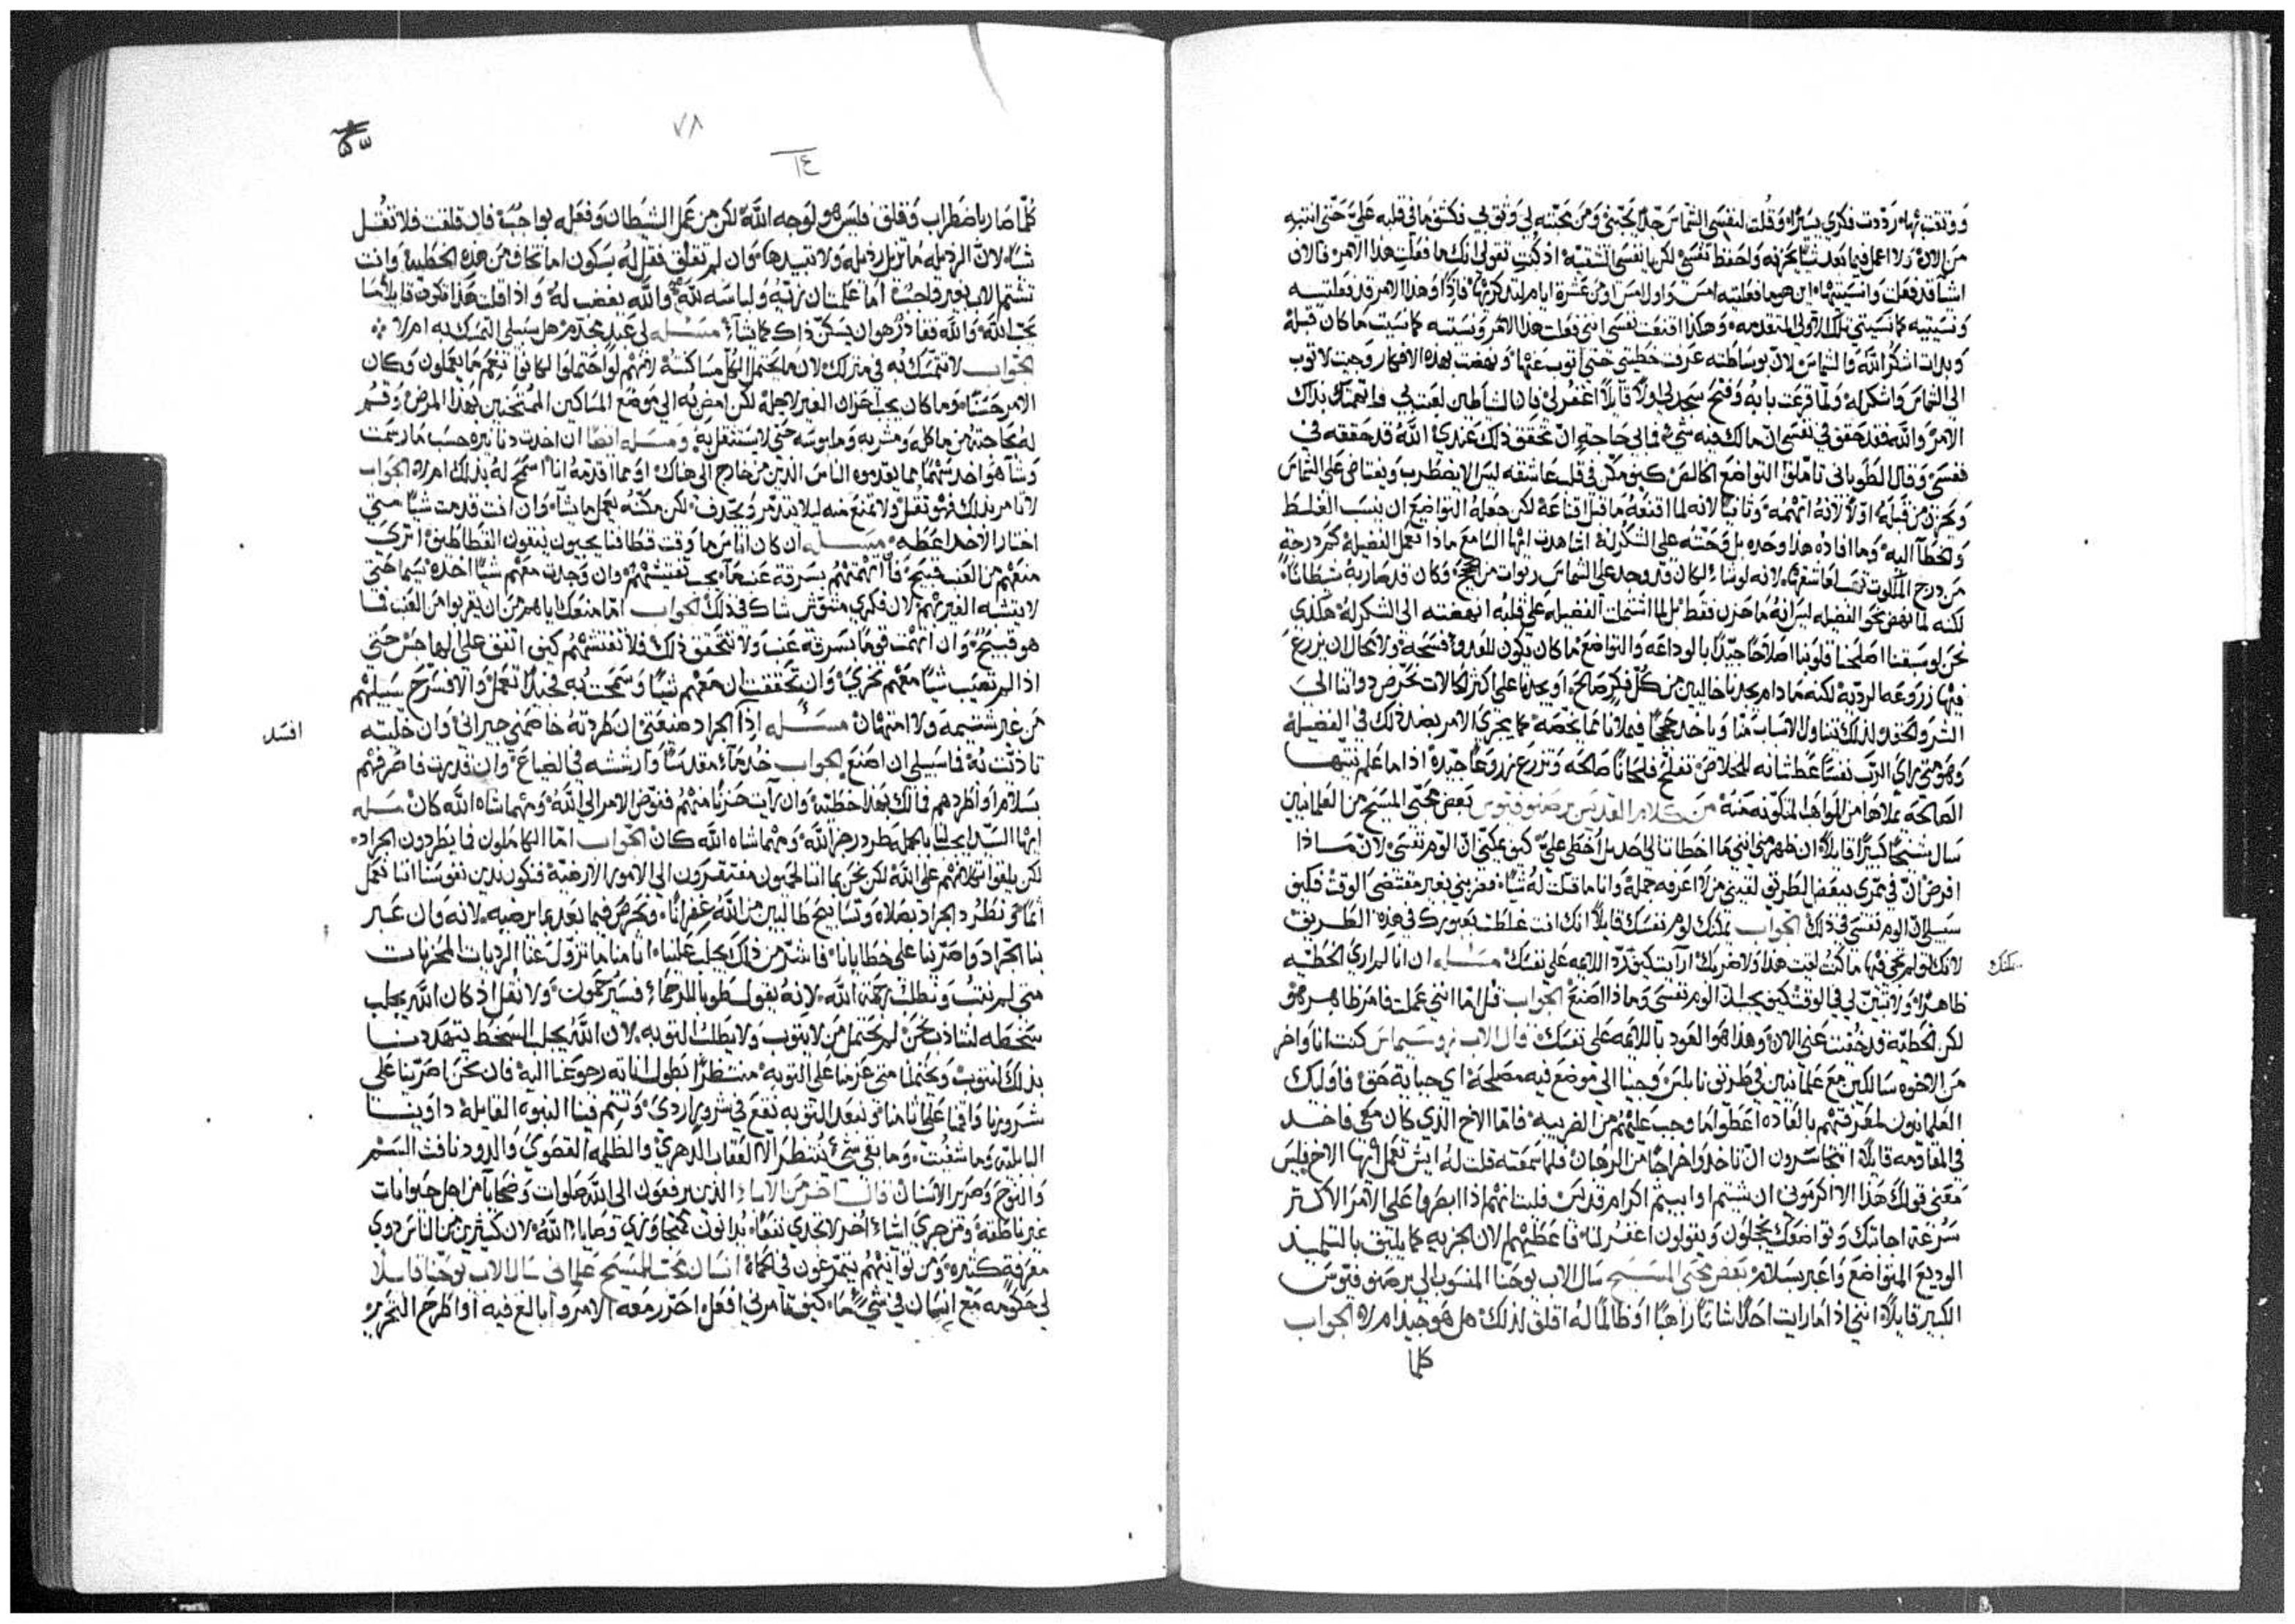 ووثقت بها رددت فكري يسيرًا وقلت لنفسي الشماس جدًا يحبني ومن محبته لي وثق بي فكشف ما في قلبه علي حتى انتبه
من الان ولا اعمل فيما بعد شيًا يحزنه ولحفظ نفسي لكن يا نفسي الشقيه اذ كنت تقولي انك ما فعلت هذا الامر فالان
اشيا قد فعلت وانسيتيها اين هو ما فعلتيه امس واول امس ومن عشرة ايام لتذكريها فاذًا وهذا الامر قد فعلتيه
ونسيتيه كما نسيتي تلك الاولى المتقدمه وهكذا اقنعت نفسي انني فعلت هذا الامر ونسيته كما نسيت ما كان قبله
وبدات اشكر الله والشماس لان بوساطته عرفت خطيتي حتى اتوب عنها ونهضت بهذه الافكار وجيت لاتوب
الى الشماس واشكر له ولما قرعت بابه وفتح سجد لي اولًا قايلًا اغفر لي فان الشياطين لعبت بي واتهمتك بذلك
الامر والله فقد حقق في نفسي ان ما لك فيه شي فما بي حاجة ان تحقق ذلك عندي الله قد حققه في
نفسي وقال الطوباني تاملوا التواضع الخالص كيف مكن في قلب عاشقه ليس الا يضطرب ويغتاض على الشماس
ويحزن من قبله اولًا لانه اتهمه وثانيًا لانه لما اقنعه ما قبل اقناعه لكن جعله التواضع ان ينسب الغلط
والخطا اليه وما افاده هذا وحده بل وحثه على الشكر له اشاهدت ايها السامع ماذا تعمل الفضيله كم درجة
من درج الملكوت تنسا لعاشقها لانه لو شاء لكان قد وجد على الشماس ربوات من حجج وكان قد صار به شيطانًا
لكنه لما نهض نحو الفضيله ليس انه ما حزن فقط بل لما اشتملت الفضيله على قلبه انهضته الى الشكر له هكذى
نحن لو سبقنا اصلحنا قلوبنا اصلاحًا جيدًا بالوداعه والتواضع ما كان يكون للعدو فسحة ولا مجال ان يزرع
فيها زروعه الرديه لكنه ما دام يجدنا خاليين من كل فكر صالح او يجدنا على اكثر الحالات نحرض ذواتنا الى
الشر والحقد لذلك يتناول الاسباب منا وياخذ حججًا فيملانا مما يخصه كما يجري الامر بضد ذلك في الفضيلة
وهو متى راى الرب نفسًا عطشانه للخلاص تفلح فلحانًا صالحه وتزرع زروعًا جيده اذا ما علم نيتها
الصالحة يملاها من المواهب المتكونه منه من كلام القديس برصنوفيوس بعض محبي المسيح من العلمانيين
سال شيخًا كبيرًا قايلًا ان ظهر مني انني ما اخطات الى احد بل اخطي علي كيف يمكني ان الوم نفسي لان ماذا
افرض ان في ممري ببعض الطريق لقيني من لا اعرفه جمله وانا ما قلت له شيًا فضربني بغير مقتضى الوقت فكيف
سبيلي ان الوم نفسي في ذلك الجواب يمكنك لوم نفسك قايلًا انك انت غلطت بعبورك في هذه الطريق
لانك لو لم تجي فيها ما كنت لقيت هذا ولا ضربك ارايت كيف ترد اللايمه على نفسك مسله ان انا لم ارى الخطيه
يمكنك
ظاهرًا ولا تبين لي في الوقت كيف يجب ان الوم نفسي وماذا اصنع الجواب قل اما انني عملت فامر ظاهر هو
لكن الخطيه قد خفيت عني الان وهذا هو العود باللايمه على نفسك قال الاب زوسيماس كنت انا واخر
من الاخوه سالكين مع علمانيين في طريق نابلس وجينا الى موضع فيه مصلحة اي جباية حق فاوليك
العلمانيون لمعرفتهم بالعاده اعطوا ما وجب عليهم من الضريبه فاما الاخ الذي كان معي فاخذ
في المقاومه قايلًا اتتجاسرون ان تاخذوا خراجًا من الرهبان فلما سمعته قلت له ايش تعمل ايها الاخ فليس
معنى قولك هذا الا اكرموني ان شيتم او ابيتم اكرام قديس فليت انهم اذا ابصروا على الامر الاكثر
سرعة اجابتك وتواضعك يخجلون ويقولون اغفر لنا فاعطيهم الان الجزيه كما يليق بالتلميذ
الوديع المتواضع واعبر بسلام بعض محبي المسيح سال الاب يوحنا المنسوب الى برصنوفيوس
الكبير قايلًا انني اذا ما رايت احدًا شاتمًا راهبًا او ظالمًا له اقلق لذلك هل هو جيد ام لا الجواب
كلما
٧٨
١٤
كلما صار باضطراب وقلق فليس هو لوجه الله لكن من عمل الشيطان وفعله بواجب فان قلقت فلا تقل
شيًا لان الرذيله ما تزيل رذيله ولا تبيدها وان لم تقلق فقل له بسكون اما تخاف من هذه الخطيه وانت
تشتم الاب بغير واجب اما علمت ان زيه ولباسه لله والله يغضب له واذا قلت هذا فكون قايلًا ما
يحب الله والله فقادر هو ان يسكن ذاك كما يشاء مسله لي عبد مجذم هل سبيلي التمسك به ام لا
الجواب لا تتمسك به في منزلك لان ما يحتمل الكل مساكنته لانهم لو احتملوا لكانوا نعم ما يعملون وكان
الامر حسنًا وما كان يجب حزن الغير لاجله لكن امض به الى موضع المساكين الممتحنين بهذا المرض وقم
له بحاجته من ماكله ومشربه وملبوسه حتى لا يستثقل به ومسله ايضًا ان اخذت دنانيره حسب ما رسمت
وشا هو اخذ شيًا مما يقدموه الناس الذين من خارج الى هناك او مما اقدمه انا اسمح له بذلك ام لا الجواب
لا تامر بذلك فهو ثقل ولا تمنع منه ليلا يتذمر ويجدف لكن مكنه يعمل ما يشاء وان انت قدمت شيًا متى
اختار الاخذ اعطه مسله ان كان اناس ما وقت قطافنا يجيون يتبعون القطاطين اترى
منعهم من العنب قبيح فان اتهمتهم بسرقة عنب ما يجب تفتيشهم وان وجدت معهم شيًا اخذه سيما حتى
لا يتشبه الغير بهم لان فكري متقوش شاك في ذلك الجواب اما منعك اياهم من ان يقربوا من العنب فما
هو قبيح وان اتهمت قومًا بسرقة عنب ولا تتحقق ذلك فلا تفتشهم كيف اتفق على الهاجس حتى
اذا لم تصب شيًا معهم تخزى وان تحققت ان معهم شيًا وسمحت به فجيدًا تعمل والا فسرح سبيلهم
من غير شتيمه ولا امتهان مسله اذا الجراد ضيعتي ان طردته خاصمني جيراني وان خليته
افسد
تاذيت به فما سبيلي ان اصنع الجواب خذ ماء مقدسًا وارششه في الضياع وان قدرت فاصرفهم
بسلام او اطردهم فما لك بهذا خطيه وان رايت حزنًا منهم ففوض الامر الى الله ومهما شاء الله كان مسله
ايها السيد ايحل لنا بالجمله طرد رجز الله ومهما شاء الله كان الجواب اما الكاملون فما يطردون الجراد
لكن يلقوا كلامهم على الله لكن نحن بما اننا لحميون مفتقرون الى الامور الارضية فنكون ندين نفوسنا اننا نعمل
اثمًا ونطرد الجراد بصلاه وتسابيح طالبين من الله غفرانًا ونحرص فيما بعد بما يرضيه لانه وان عبر
بنا الجراد واضر بنا على خطايانا فما شر من ذلك يجلب علينا اننا ما تزول عنا الرديات المحزنات
متى لم نتب ونطلب رحمة الله لانه يقول طوبا للرحماء فسيرحمون ولا نقل اذ كان الله يجلب
سخطه لنتاذب نحن لم يحتمل من لا يتوب ولا يطلب التوبه لان الله يجلب السخط يتهددنا
بذلك لنتوب ويحتملنا متى عزمنا على التوبه منتظرًا بطول اناته رجوعنا اليه فان نحن اصرينا على
شرورنا واقمنا على اثامنا فبعد التوبه نقع في شرور اردى وتتم فينا النبوه القايلة داوينا
البابليه وما شفيت وما بقي شي ينتظر الا العقاب الدهري والظلمه القصوى والدود نافث السم
والنوح وصرير الاسنان قال اخر من الاباء الذين يرفعون الى الله صلوات وضحايا من اجل حيوانات
غير ناطقة ومن جري اشياء اخر لا تجدي نفعًا يدانون كمتجاوزي وصايا الله لان كثيرين من الناس ذوي
معرفة كثيره ومن توانيهم يتمرغون في الحماة انسان محب للمسيح علماني سال الاب يوحنا قايلًا
لي حكومه مع انسان في شي ما كيف تامرني افعل احرر معه الامر وابالغ فيه او اطرح التحرير